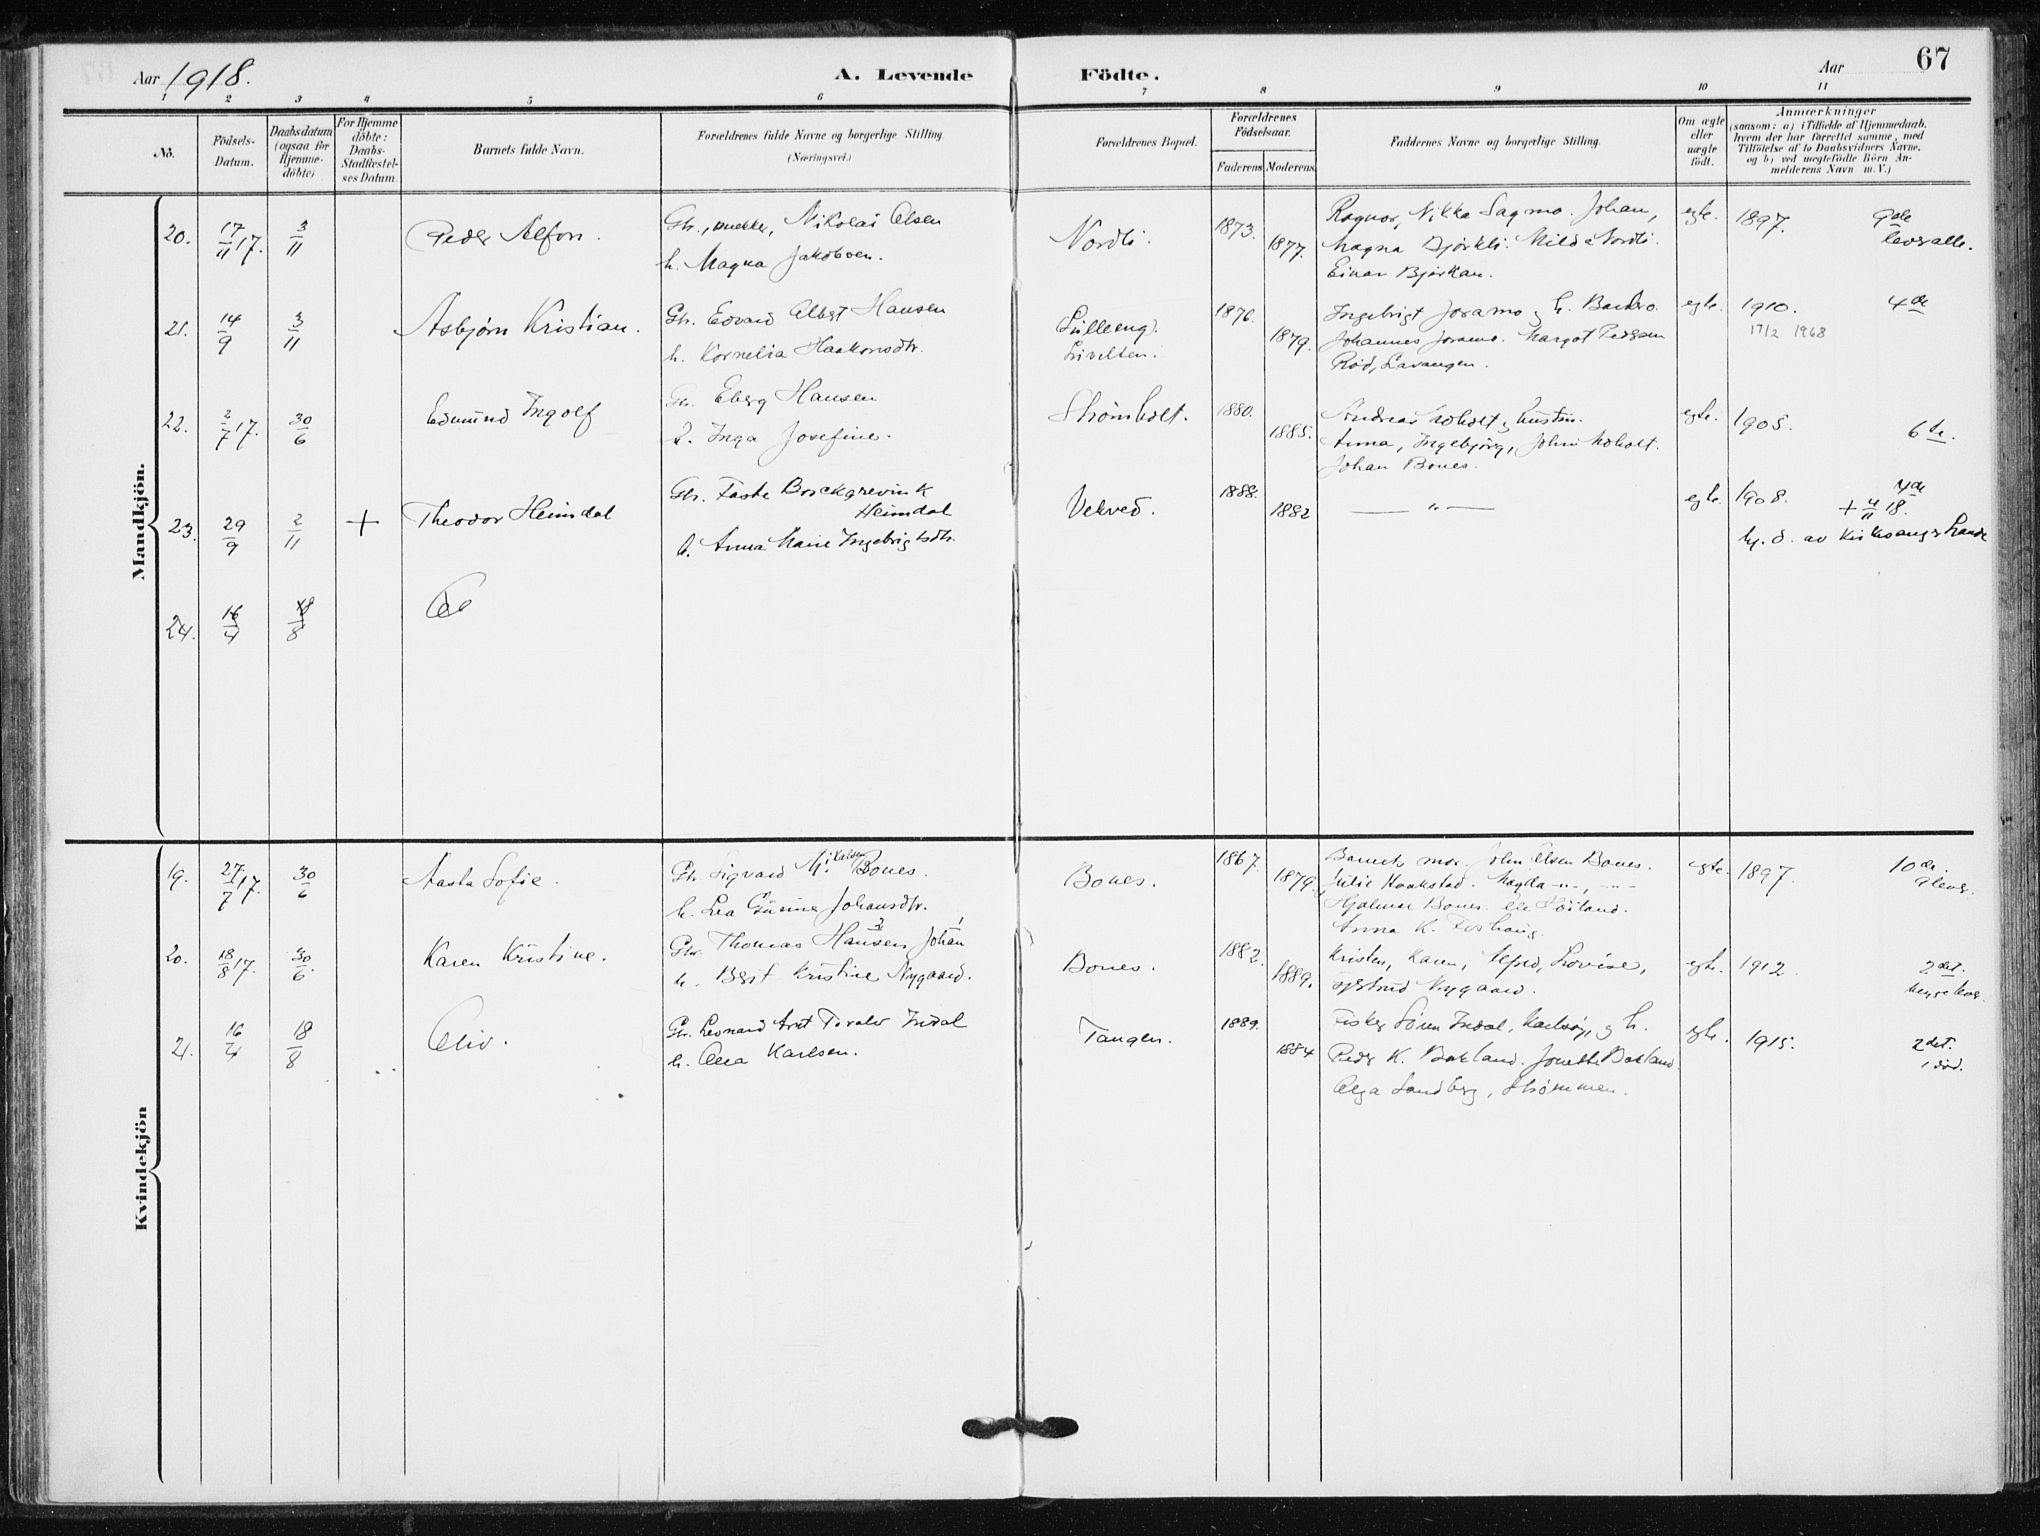 67
Aar 1918. A. Levende Födte. Aar
1 2 3 4 5 6 7 8 9 10 11
No. Födsels-Datum. Daabsdatum (ogsaa for Hjemme-döbte) For Hjemme döbte: Daabs-Stadfæstel-ses Datum. Barnets fulde Navn. Forældrenes fulde Navne og borgerlige Stilling. (Næringsvei.) Forældrenes Bopæl. Forældrenes Födselsaar. Faderens Moderens Faddernes Navne og borgerlige Stilling. Om ægte eller uægte födt. Anmærkninger (saasom: a) i Tilfælde af Hjemmedaab, hvem der har forrettet samme, med Tilföielse af to Daabsvidners Navne, og b) ved uægtefödte Börn An-melderens Navn m.V.)
Mandkjön.
20. 17/11 17. 3/11 Peder Alfon. Gb., Nikolai Olsen Nordli. 1873. Ragnor, Nikka Sagmo. Johan, egte. 1897. 9de
h. Magna Jakobsen. 1877. Magna Bjørkli. Hilda Nordli. lever alle.
Einar Bjørkan.
21. 14/9 3/11 Asbjørn Kristian. Gb. Edvard Albert Hansen Lilleeng. 1876. Ingebrigt Joramo og h. Bardo. egte. 1910. 4de
h. Kornelia Haakonsdtr. 1879. Johannes Joramo. Margot Pedersen 17/2 1968
Rød, Lavangen.
22. 2/7 17. 30/6 Edmund Ingolf Gb. Eberg Hansen Strømholt. 1880. Andreas Moholt og hustru. egte. 1905. 6te.
h. Inga Josefine. 1885. Anna, Ingebjørg, John Moholt.
Johan Bones.
23. 29/9 2/11 + Theodor Heimdal Gb. Faste Borchgrevink Heimdal Velved. 1888. — " — egte. 1908. 4de
h. Anna Marie Ingebrigtsdtr. 1882 + 4/11 18.
hj. d. av Kirkesanger Strande
24. 16/4 18/8
Kvindekjön
19. 27/7 17. 30/6 Aasta Sofie. Gb. Sigvard Mikalsen Bones. Bones. 1867. Barnets mor. John Olsen Bones. egte. 1897. 10de.
h. Lea Gurine Johansdtr. 1879. Julie Haakstad. Magda -"-, -"- 9 lever.
Hjalmar Bones.
Anna K. Foshaug.
20. 18/8 17. 30/6. Karen Kristine. Gbr. Thomas Hansen Johan Bones. 1882. Kristen, Karen, Alfred, Lovise, egte. 1912. 2det.
h. Berit Kristine Nygaard. 1889. Gjertrud Nygaard. begge lever.
21. 16/4 18/8 Oliv. Gb. Leonard Arnt Toralv Indal Tangen. 1889. Fisker Sören Indal, Karlsøy, og h. egte. 1915. 2det.
h. Olea Karlsen. 1884 Peder K. Bakland. Jonette Bakland. 1 død.
Olga Sandberg, Strømmen.